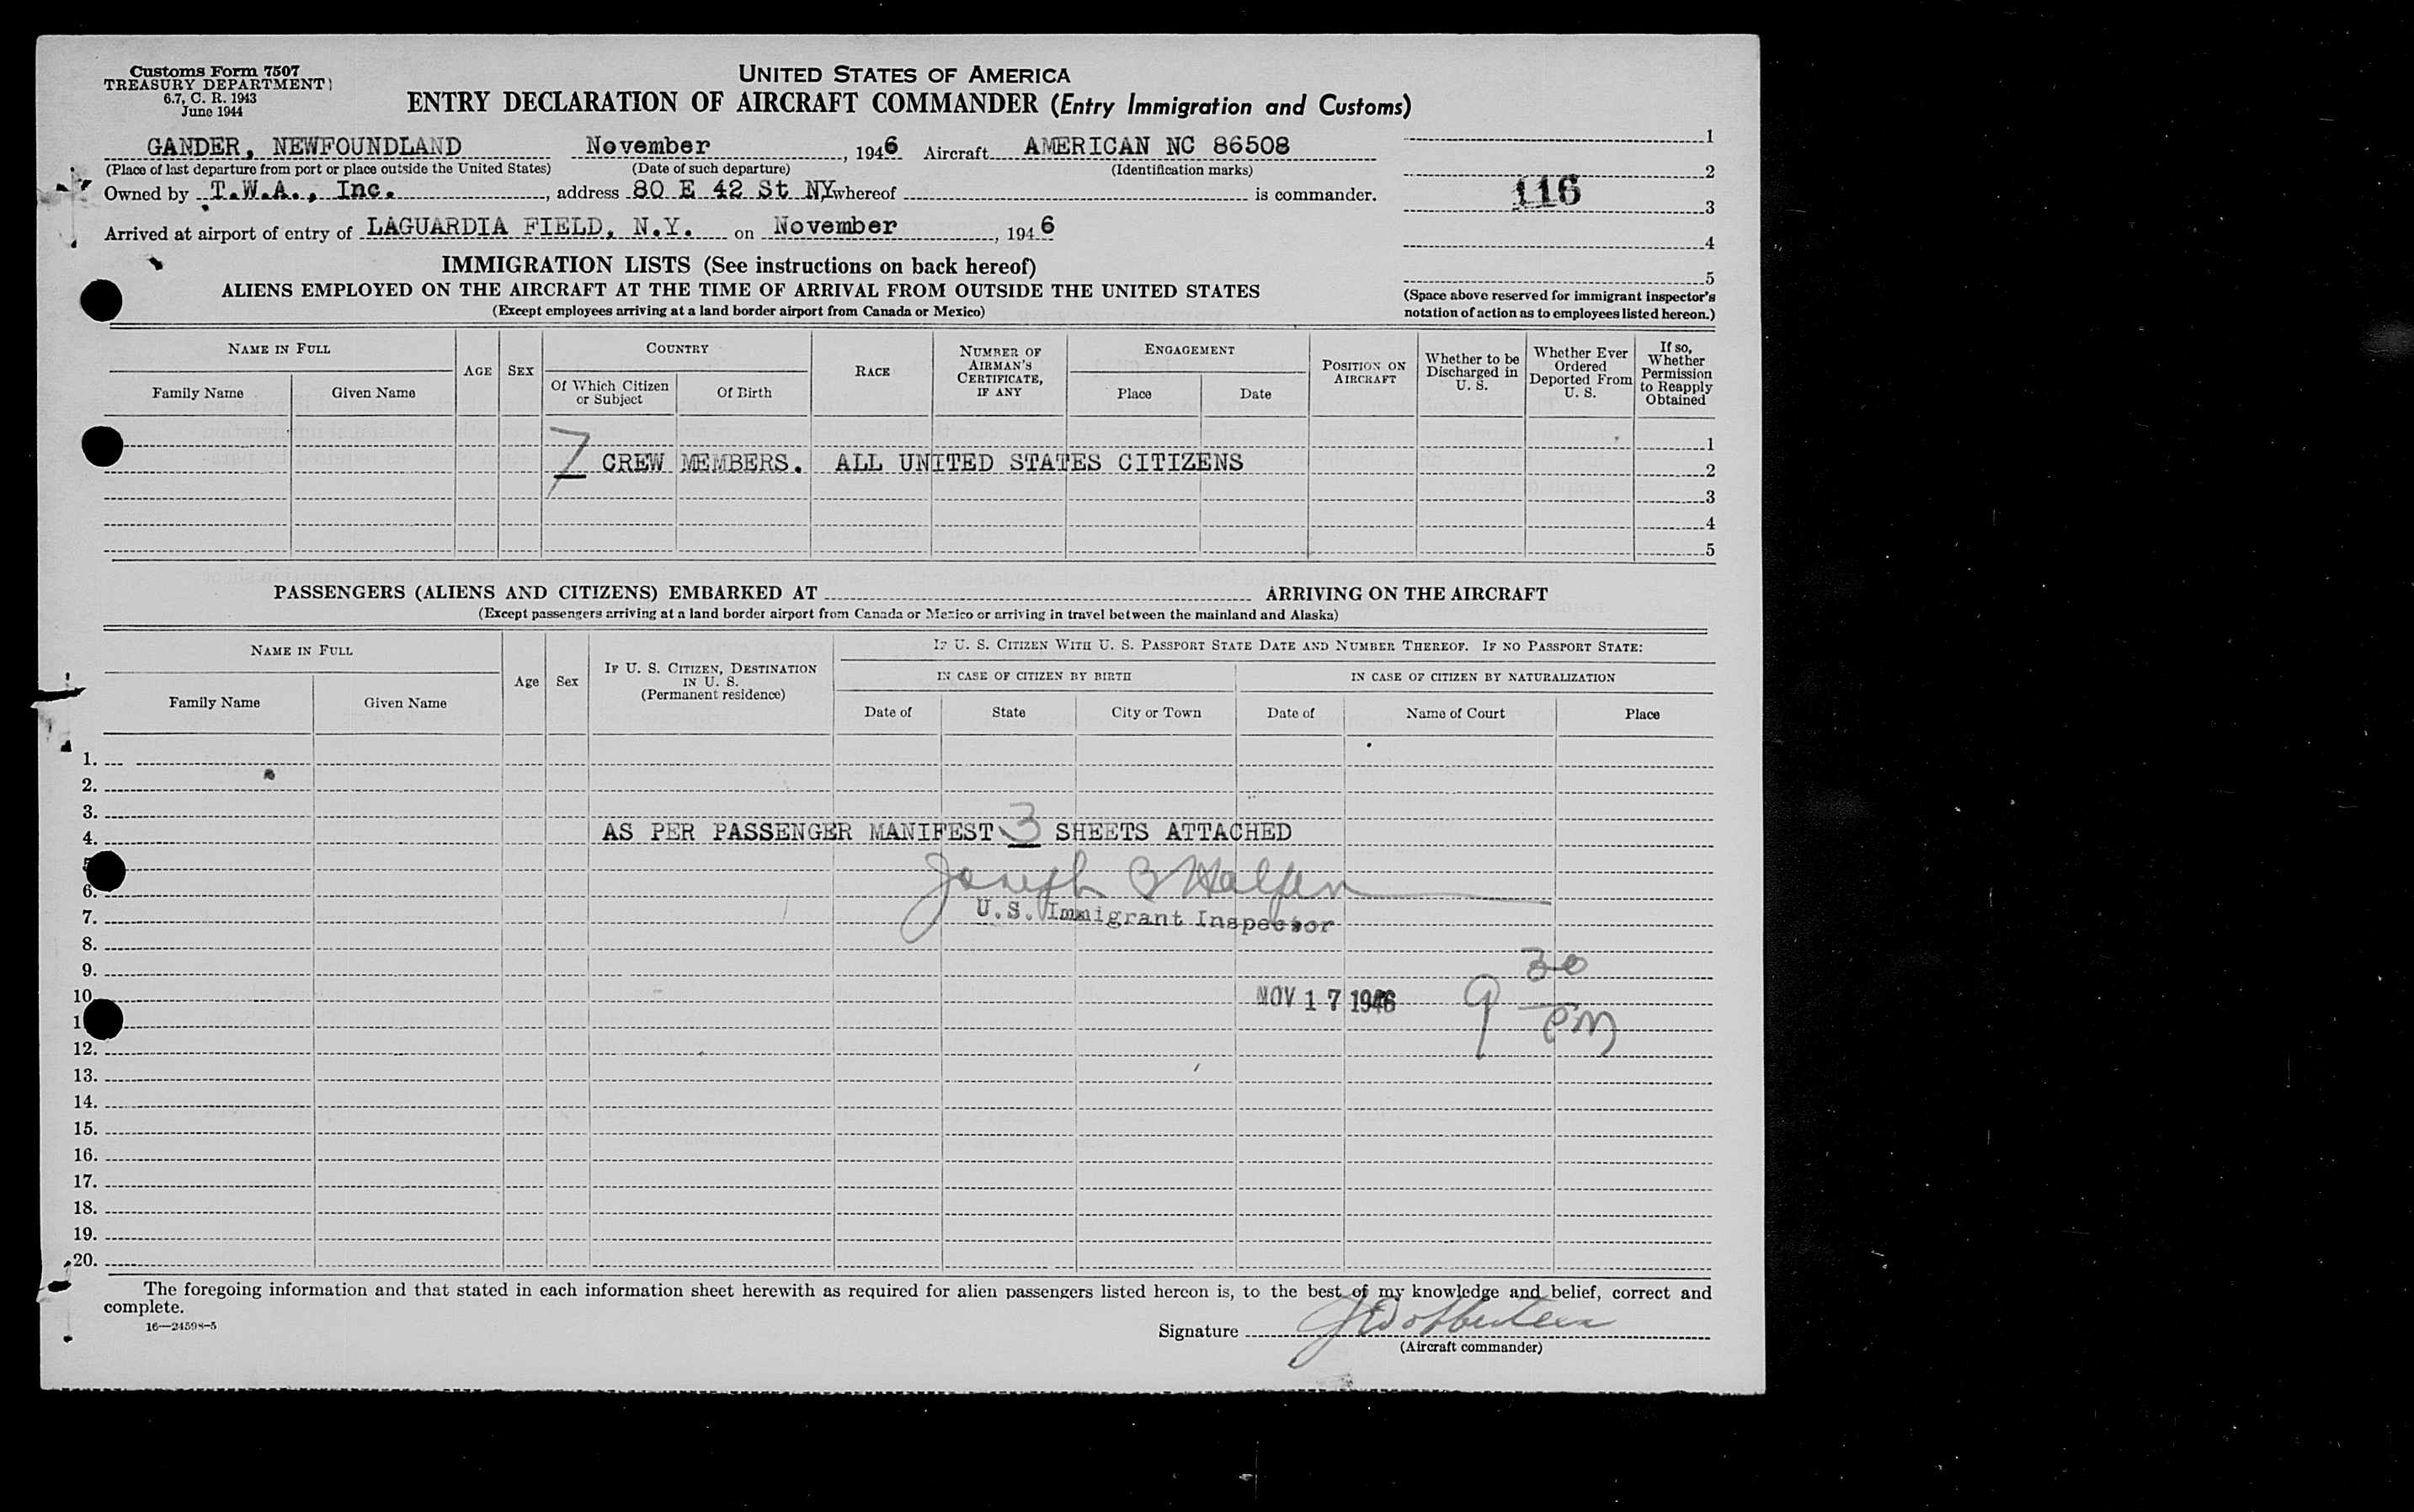 Customs Form 7507
TREASURY DEPARTMENT
6.7, C. R. 1943
June 1944
UNITED STATES OF AMERICA
ENTRY DECLARATION OF AIRCRAFT COMMANDER (Entry Immigration and Customs)
GANDER, NEWFOUNDLAND November , 1946 Aircraft AMERICAN NC 86508
(Place of last departure from port or place outside the United States) (Date of such departure) (Identification marks)
Owned by T.W.A., Inc. , address 80 E 42 St NY whereof is commander.
Arrived at airport of entry of LAGUARDIA FIELD, N.Y. on November , 1946
1
2
116
3
4
5
(Space above reserved for immigrant inspector's
notation of action as to employees listed hereon.)
IMMIGRATION LISTS (See instructions on back hereof)
ALIENS EMPLOYED ON THE AIRCRAFT AT THE TIME OF ARRIVAL FROM OUTSIDE THE UNITED STATES
(Except employees arriving at a land border airport from Canada or Mexico)
NAME IN FULL
Family Name Given Name
AGE
SEX
COUNTRY
Of Which Citizen
or Subject
Of Birth
RACE
NUMBER OF
AIRMAN'S
CERTIFICATE,
IF ANY
ENGAGEMENT
Place Date
POSITION ON
AIRCRAFT
Whether to be
Discharged in
U. S.
Whether Ever
Ordered
Deported From
U. S.
If so,
Whether
Permission
to Reapply
Obtained
1
7 CREW MEMBERS. ALL UNITED STATES CITIZENS 2
3
4
5
PASSENGERS (ALIENS AND CITIZENS) EMBARKED AT ARRIVING ON THE AIRCRAFT
(Except passengers arriving at a land border airport from Canada or Mexico or arriving in travel between the mainland and Alaska)
NAME IN FULL
Family Name Given Name
Age
Sex
IF U. S. CITIZEN, DESTINATION
IN U. S.
(Permanent residence)
IF U. S. CITIZEN WITH U. S. PASSPORT STATE DATE AND NUMBER THEREOF. IF NO PASSPORT STATE:
IN CASE OF CITIZEN BY BIRTH IN CASE OF CITIZEN BY NATURALIZATION
Date of State City or Town Date of Name of Court Place
1.
2.
3.
4. AS PER PASSENGER MANIFEST 3 SHEETS ATTACHED
5
6. Joseph B Halfen
7. U.S. Immigrant Inspector
8.
9.
10 NOV 17 1946 9 30 PM
1
12.
13.
14.
15.
16.
17.
18.
19.
20.
The foregoing information and that stated in each information sheet herewith as required for alien passengers listed hereon is, to the best of my knowledge and belief, correct and
complete.
16—24598-5
Signature
(Aircraft commander)